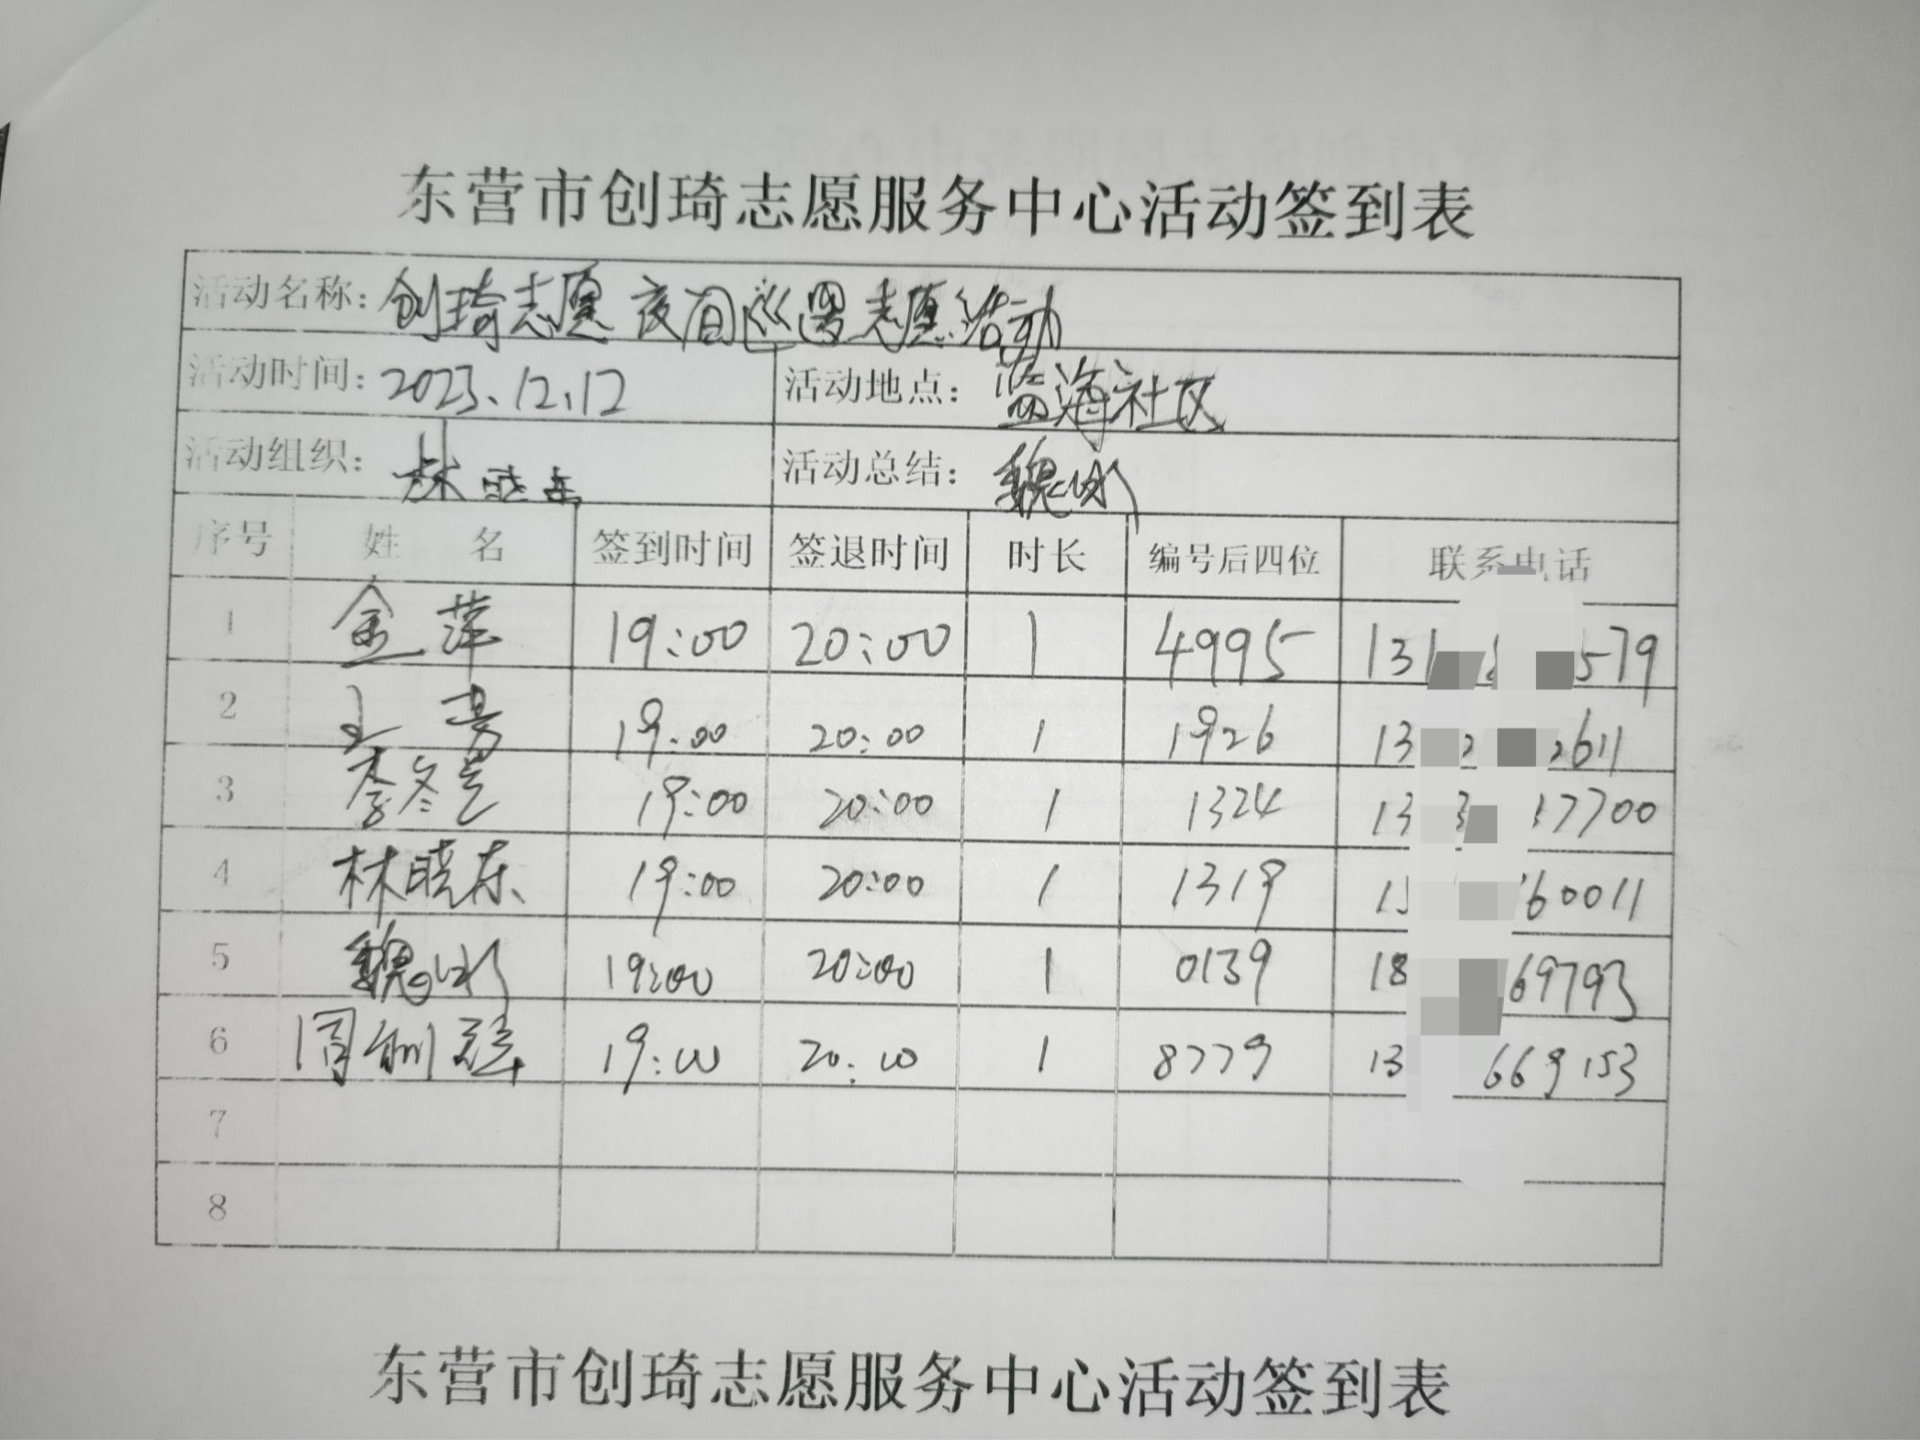 东营市创琦志愿服务中心活动签到表
活动名称：创琦志愿 夜间巡逻志愿活动
活动时间：2023.12.12 活动地点：蓝海社区
活动组织：林晓东 活动总结：魏冰
序号 姓名 签到时间 签退时间 时长 编号后四位 联系电话
1 金萍 19:00 20:00 1 4995 131 579
2 19:00 20:00 1 1926 13 2 2611
3 李冬芝 19:00 20:00 1 1324 13 3 17700
4 林晓东 19:00 20:00 1 1319 60011
5 魏冰 19:00 20:00 1 0139 18 69793
6 周 19:00 20:00 1 8779 13 669153
7
8
东营市创琦志愿服务中心活动签到表